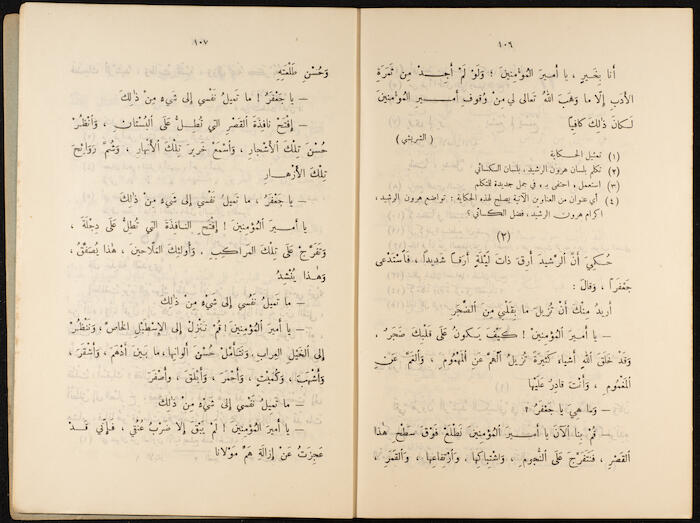 ١٠٦
أنا بِخَيرٍ ، يا أَميرَ المُؤْمِنينَ ! وَلَوْ لَمْ أَجِدْ مِن ثَمَرَةِ
الأَدَبِ إلّا ما وَهَبَ اللهُ تَعالى لي مِنْ وُقوفِ أَميرِ المُؤْمِنينَ
لَكانَ ذٰلِكَ كافياً
( الشريشي )
(١) تمثيل الحكاية
(٢) تكلم بلسان هرون الرشيد ، بلسان الكسائي
(٣) استعمل : احتفى بـ ، في جمل جديدة للتكلم
(٤) أي عنوان من العناوين الآتية يصلح لهذه الحكاية : تواضع هرون الرشيد ،
اكرام هرون الرشيد ، فضل الكسائي ؟
(٢)
حُكِيَ أَنَّ الرَّشيدَ أَرِقَ ذاتَ لَيْلَةٍ أَرَقاً شَديداً ، فَاسْتَدْعى
جَعْفَراً ، وَقالَ :
أُريدُ مِنْكَ أَنْ تُزيلَ ما بِقَلْبي مِنَ الضَّجَرِ
— يا أَميرَ المُؤْمِنينَ ! كَيْفَ يَكونُ عَلى قَلْبِكَ ضَجَرٌ ،
وَقَدْ خَلَقَ اللهُ أَشياءَ كَثيرَةً تُزيلُ الهَمَّ عَنِ المَهْمومِ ، وَالغَمَّ عَنِ
المَغْمومِ ، وَأَنْتَ قادِرٌ عَلَيْها
— وَما هِيَ يا جَعْفَرُ ؟
— قُمْ بِنا الآنَ يا أَميرَ المُؤْمِنينَ نَطْلَعْ فَوْقَ سَطْحِ هٰذا
القَصْرِ ، فَنَتَفَرَّجُ عَلى النُّجومِ ، وَاشْتِباكِها ، وَارْتِفاعِها ، وَالقَمَرِ ،
١٠٧
وَحُسْنِ طَلْعَتِهِ
— يا جَعْفَرُ ! ما تَميلُ نَفْسي إلى شَيْءٍ مِنْ ذٰلِكَ
— إفْتَحْ نافِذَةَ القَصْرِ التي تُطِلُّ عَلى البُسْتانِ ، وَانْظُرْ
حُسْنَ تِلْكَ الأَشْجارِ ، وَاسْمَعْ خَريرَ تِلْكَ الأَنْهارِ ، وَشُمَّ رَوائِحَ
تِلْكَ الأَزْهارِ
— يا جَعْفَرُ ، ما تَميلُ نَفْسي إلى شَيْءٍ مِنْ ذٰلِكَ
— يا أَميرَ المُؤْمِنينَ ! إفْتَحِ النافِذَةَ التي تُطِلُّ عَلى دِجْلَةَ ،
وَتَفَرَّجْ عَلى تِلْكَ المَراكِبِ ، وَأُولٰئِكَ المَلّاحينَ ، هٰذا يُصَفِّقُ ،
وَهٰذا يُنْشِدُ
— ما تَميلُ نَفْسي إلى شَيْءٍ مِنْ ذٰلِكَ
— يا أَميرَ المُؤْمِنينَ ! قُمْ نَنْزِلْ إلى الإِسْطَبْلِ الخاصِّ ، وَنَنْظُرْ
إلى الخَيْلِ العِرابِ ، وَنَتَأَمَّلْ حُسْنَ أَلوانِها، ما بَيْنَ أَدْهَمَ ، وَأَشْقَرَ ،
وَأَشْهَبَ ، وَكُمَيْتٍ ، وَأَحْمَرَ ، وَأَبْلَقَ ، وَأَصْفَرَ
— ما تَميلُ نَفْسي إلى شَيْءٍ مِنْ ذٰلِكَ
— يا أَميرَ المُؤْمِنينَ ! لَمْ يَبْقَ إلّا ضَرْبُ عُنُقي ، فَإِنّي قَدْ
عَجِزْتُ عَنْ إزالَةِ هَمِّ مَوْلانا